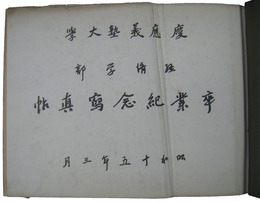 學大塾義應慶
部学済経
帖真寫念紀業卒
月三年五十和昭